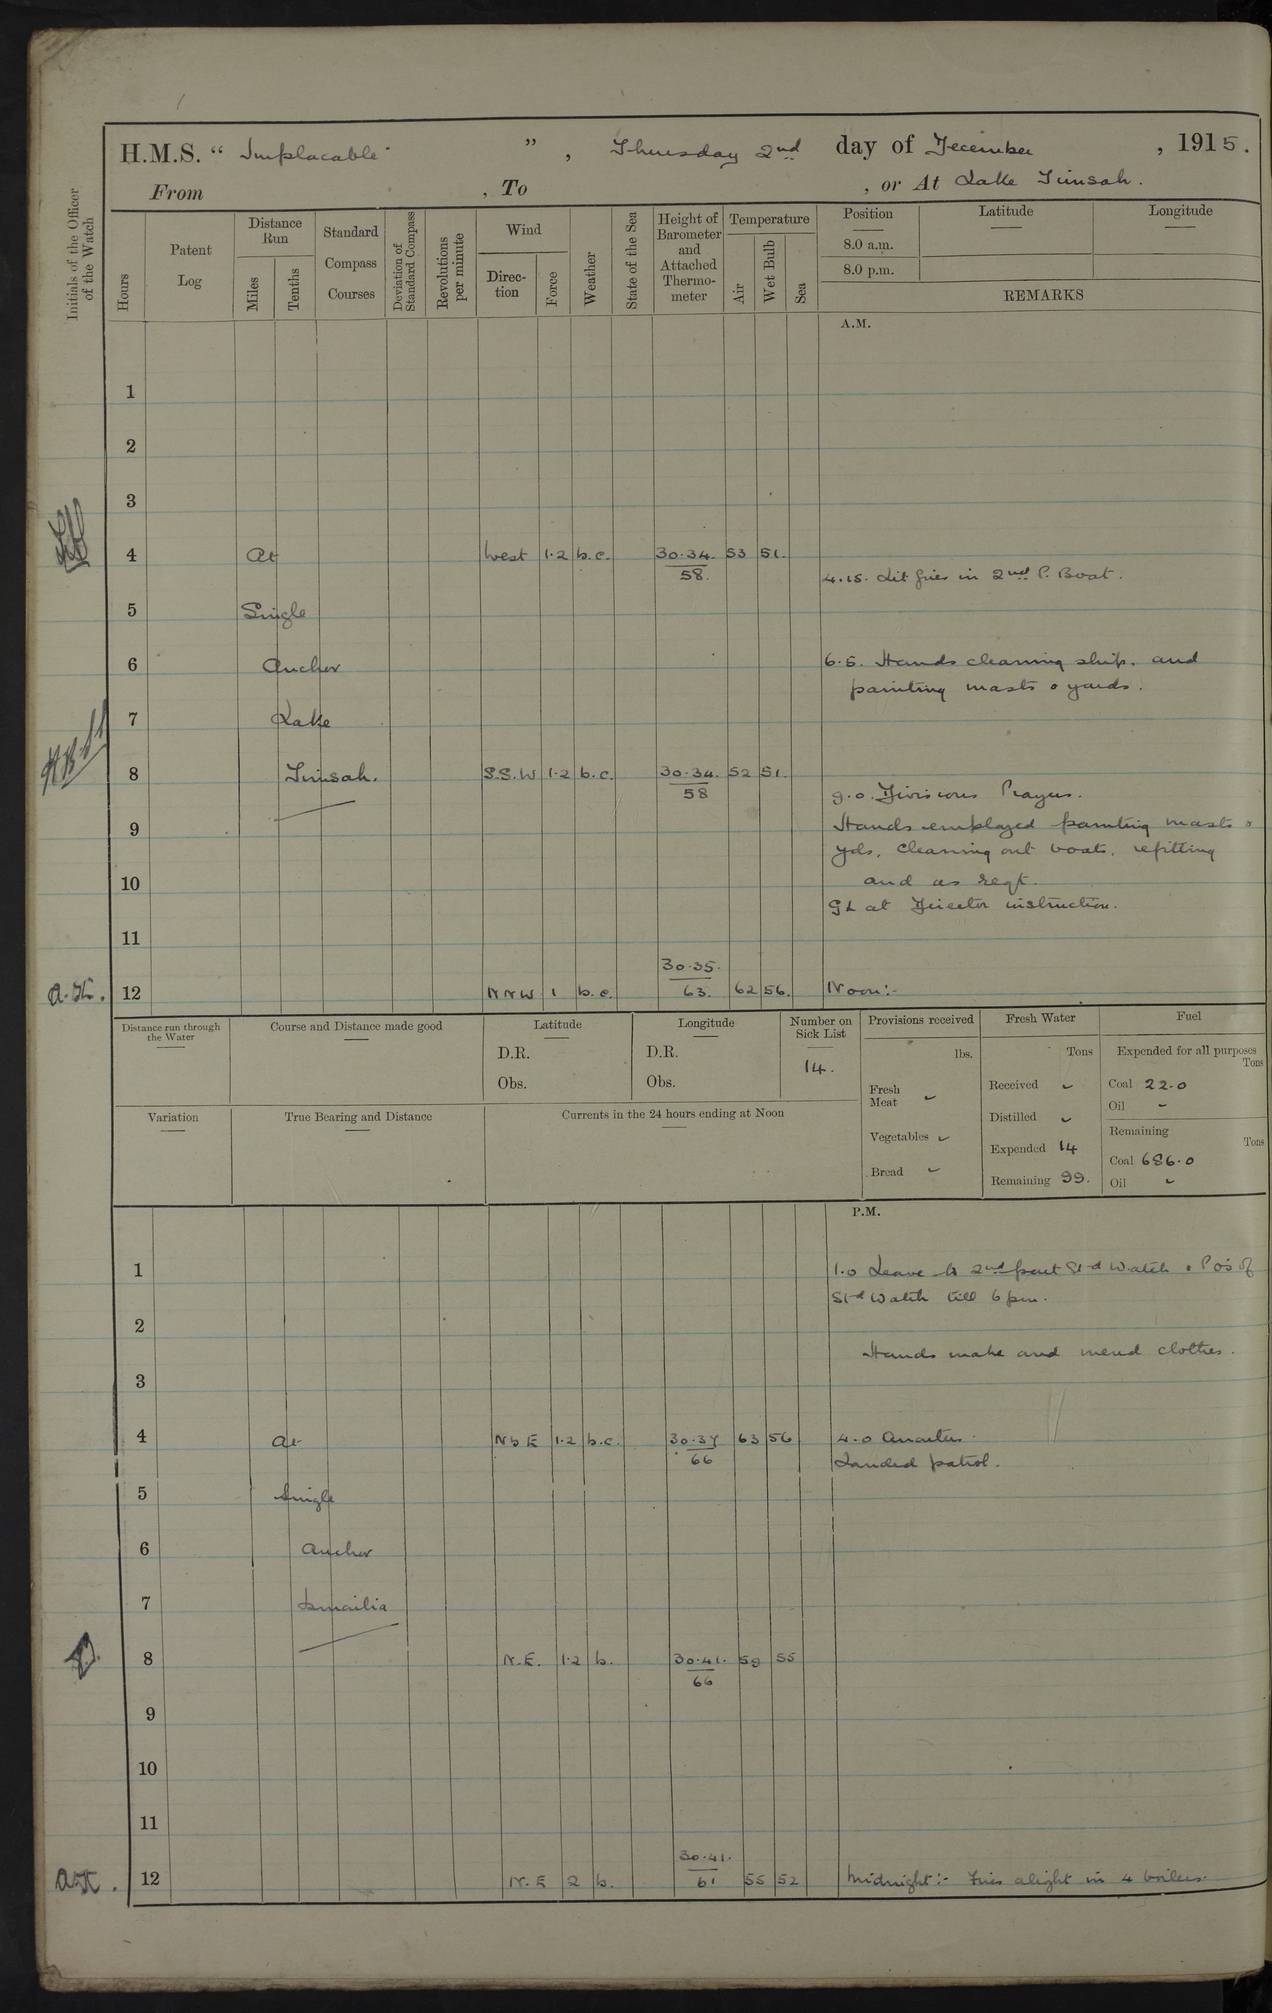 H.M.S. “ Implacable ” , Thursday 2nd day of December , 1915.
From , To , or At Lake Timsah.
Initials of the Officer of the Watch
Hours
Patent Log
Distance Run
Miles
Tenths
Standard Compass Courses
Deviation of Standard Compass
Revolutions per minute
Wind
Direc- tion
Force
Weather
State of the Sea
Height of Barometer and Attached Thermo- meter
Temperature
Air
Wet Bulb
Sea
Position
Latitude
Longitude
8.0 a.m.
8.0 p.m.
REMARKS
A.M.
1
2
3
4 At West 1·2 b.c. 30·34. 53 51.
58.
4.15. Lit fires in 2nd P. Boat.
5 Single
6 Anchor 6·5. Hands cleaning ship. and
painting masts & yards.
7 Lake
8 Timsah. S.S.W 1·2 b.c. 30·34. 52 51.
58
9.0. Divisions Prayers.
9 Hands employed painting masts &
yds, cleaning out boats, refitting
10 and as reqt.
GL at Director instruction.
11
30·35.
A.H. 12 NNW 1 b.c. 63. 62 56. Noon:-
Distance run through the Water
Course and Distance made good
Latitude
D.R.
Obs.
Longitude
D.R.
Obs.
Number on Sick List
14.
Provisions received
lbs.
Fresh Meat
Vegetables
Bread
Fresh Water
Tons
Received
Distilled
Expended 14
Remaining 99.
Fuel
Expended for all purposes
Tons
Coal 22·0
Oil -
Remaining
Tons
Coal 686·0
Oil
Variation
True Bearing and Distance
Currents in the 24 hours ending at Noon
P.M.
1 1.0 Leave to 2nd part Std Watch & P.O's of
Std Watch till 6pm.
2
Hands make and mend clothes.
3
4 At NbE 1·2 b.c. 30·37 63 56 4.0 Quarters.
66
Landed patrol.
5 Single
6 Anchor
7 Ismailia
8 N.E. 1·2 b. 30·41. 59 55
66
9
10
11
30·41.
12 N.E 2 b. 61 55 52 Midnight:- Fires alight in 4 boilers.